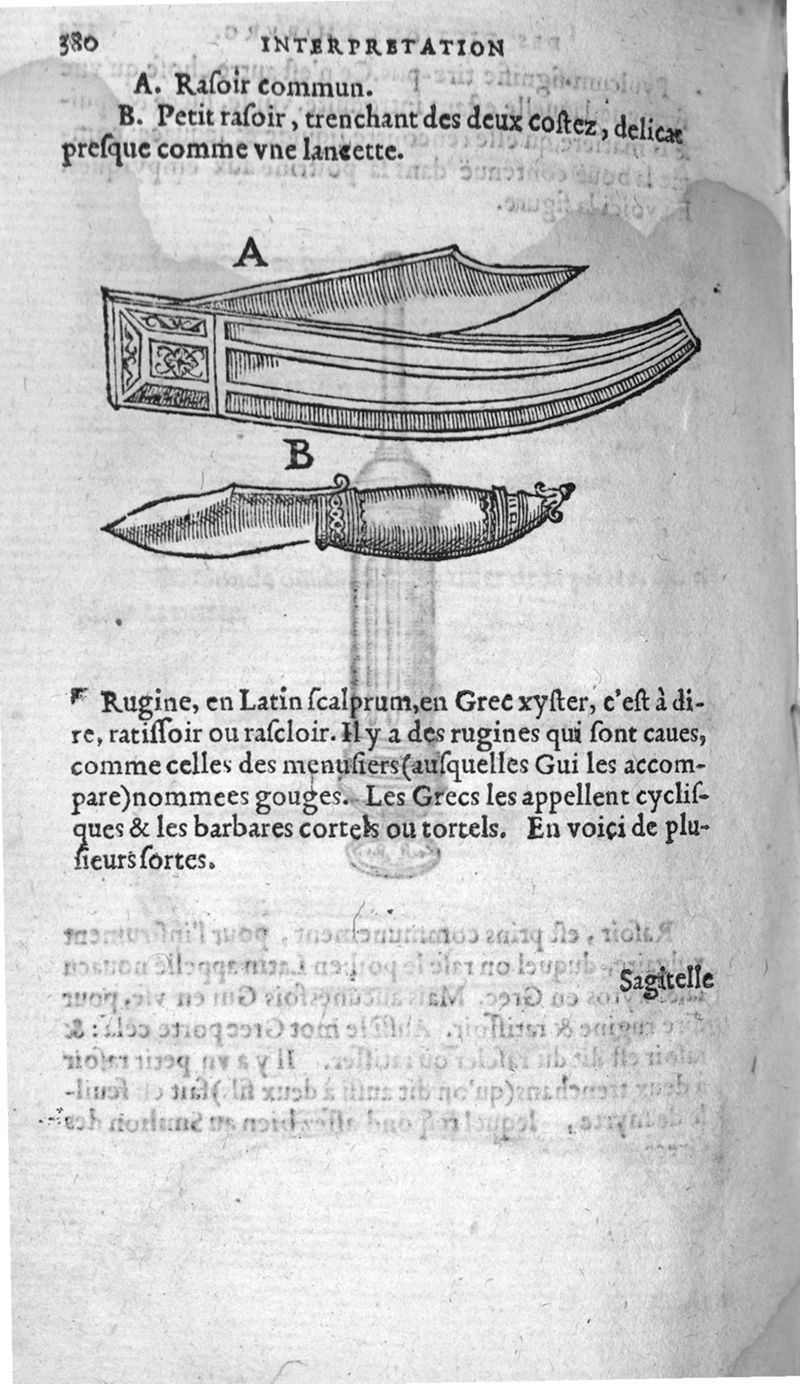 380 INTERPRETATION
A. Raſoir commun.
B. Petit raſoir, trenchant des deux coſtez, delicat
preſque comme vne lancette.
A
B
Rugine, en Latin ſcalprum, en Grec xyſter, c'eſt à di-
re, ratiſſoir ou raſcloir. Il y a des rugines qui ſont caues,
comme celles des menuſiers (auſquelles Gui les accom-
pare) nommees gouges. Les Grecs les appellent cycliſ-
ques & les barbares cortels ou tortels. En voiçi de plu-
ſieurs ſortes.
Sagitelle